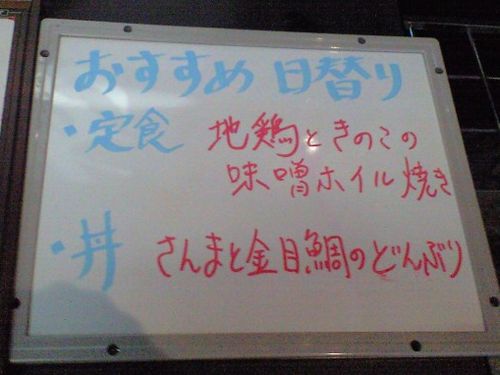 おすすめ 日替り
・定食 地鶏ときのこの
味噌ホイル焼き
・丼 さんまと金目鯛のどんぶり